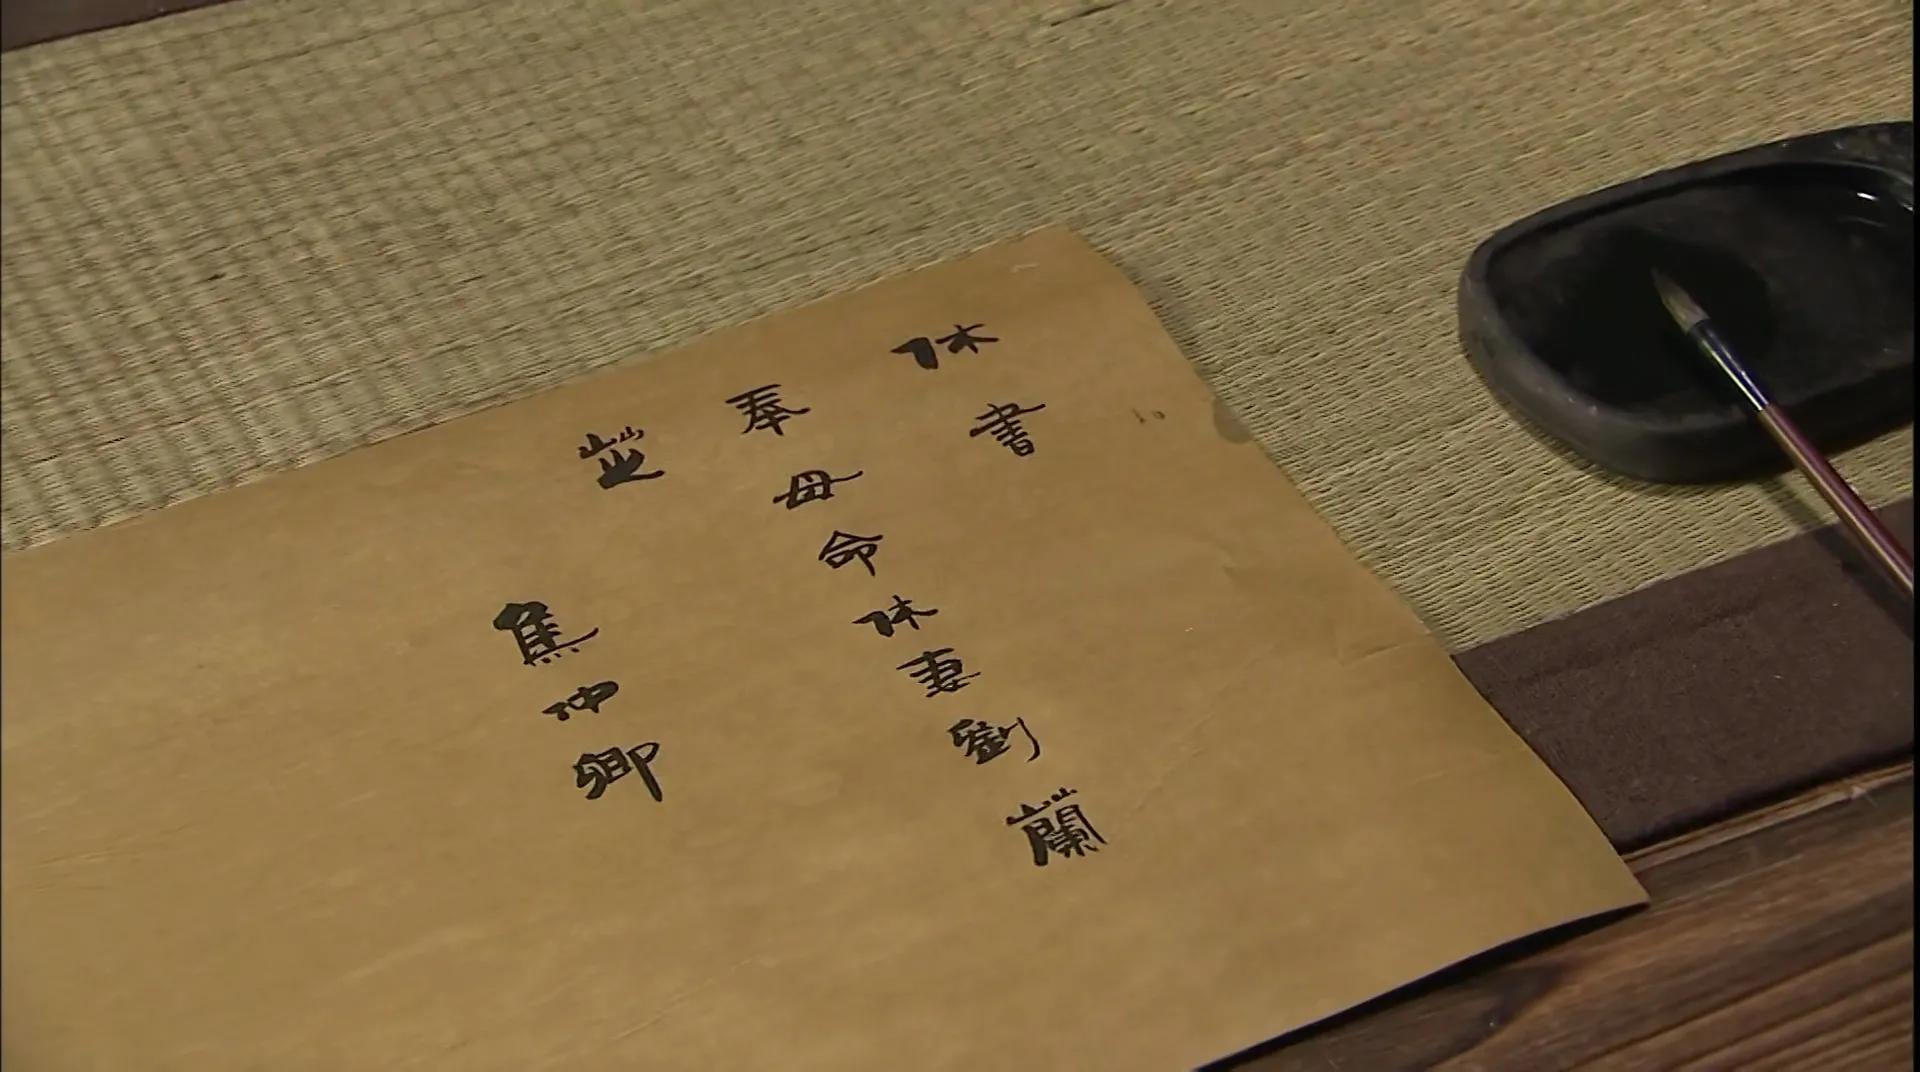 休書
奉母命休妻劉蘭
芝
焦沖卿